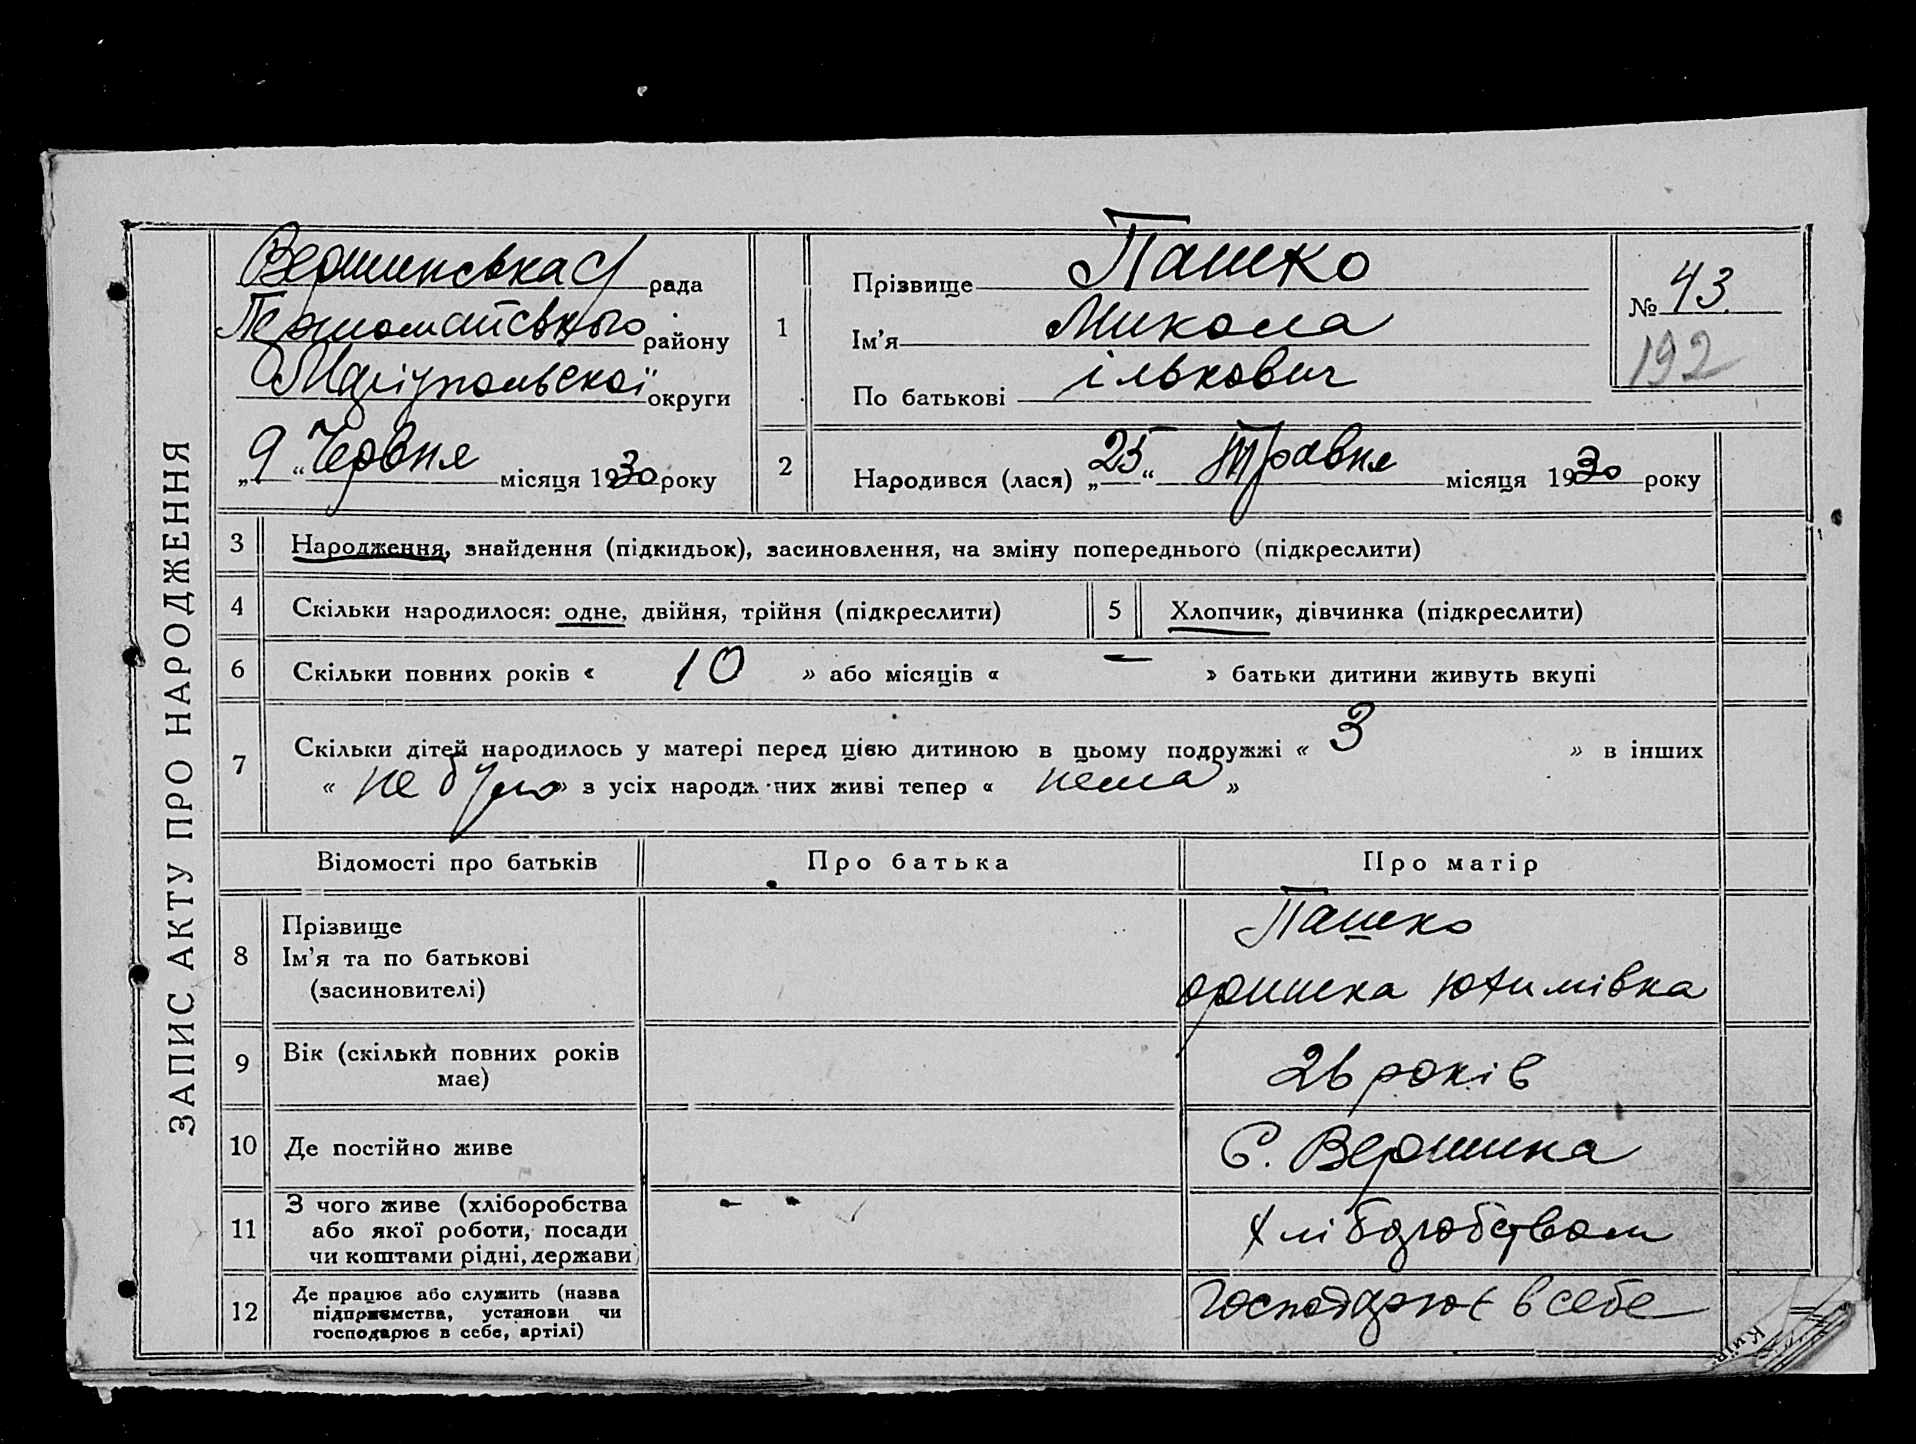 ЗАПИС АКТУ ПРО НАРОДЖЕННЯ
Вершинська с/ рада
Першомайського району
Маріупольської округи
„9“ Червня місяця 1930 року
1
Прізвище Пашко
Ім'я Микола
По батькові ількович
№ 43.
192
2
Народився (лася) „25“ Травня місяця 1930 року
3 Народження, знайдення (підкидьок), засиновлення, на зміну попереднього (підкреслити)
4 Скільки народилося: одне, двійня, трійня (підкреслити) 5 Хлопчик, дівчинка (підкреслити)
6 Скільки повних років « 10 » або місяців « — » батьки дитини живуть вкупі
7 Скільки дітей народилось у матері перед цією дитиною в цьому подружжі « 3 » в інших
« не було » з усіх народж них живі тепер « нема »
Відомості про батьків Про батька Про матір
8 Прізвище
Ім'я та по батькові
(засиновителі)
Пашко
оришка юхимівка
9 Вік (скільки повних років
має)
26 років
10 Де постійно живе С. Вершина
11 З чого живе (хліборобства
або якої роботи, посади
чи коштами рідні, держави)
хліборобством
12 Де працює або служить (назва
підприємства, установи чи
господарює в себе, артілі)
господарює в себе
Київ